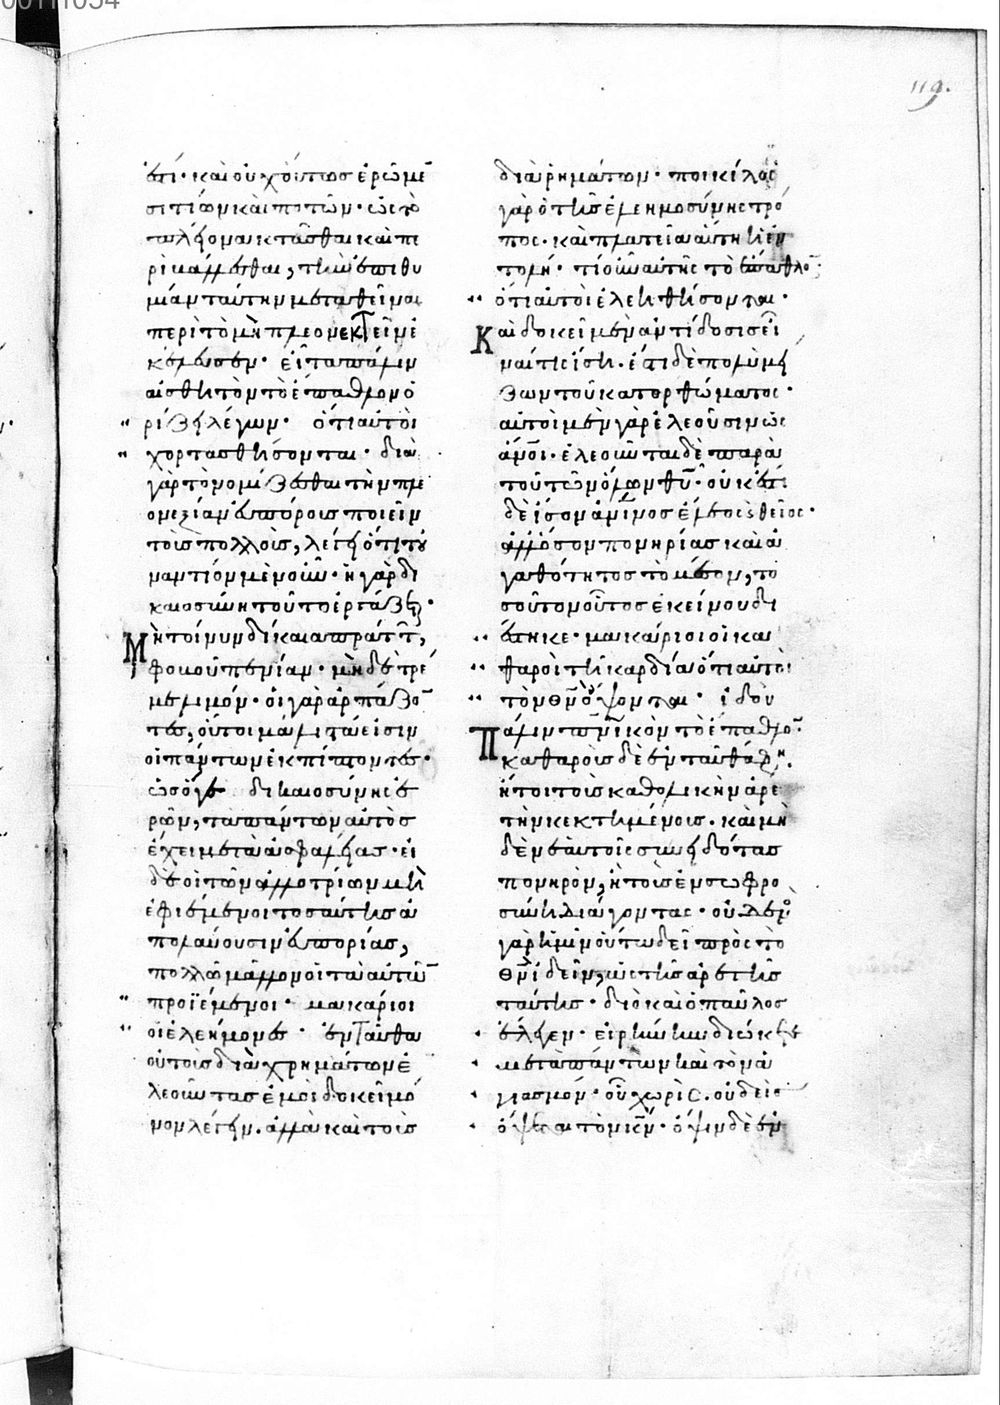 119.
ἐστι· καὶ οὐχ οὕτως ἐρῶμεν
σιτίων καὶ ποτῶν· ὡς τὸ
πλέονα κτᾶσθαι καὶ πε
ριβάλλεσθαι, τὴν ἐπιθυ
μίαν ταύτην μεταθεῖναι
περὶ τὸ μὴ πλεονεκτεῖν ἐ
κέλευσεν· εἶτα πάλιν
αἰσθητὸν τὸ ἔπαθλον ὁ
ρίζει λέγων· ὅτι αὐτοὶ
χορτασθήσονται· διὰ
γὰρ τὸ νομίζεσθαι τὴν πλε
ονεξίαν εὐπόρους ποιεῖν
τοὺς πολλοὺς, λέγει ὅτι τοὐ
ναντίον μὲν οὖν· ἡ γὰρ δι
καιοσύνη τοῦτο ἐργάζεται·
Μὴ τοίνυν δίκαια πράττων,
φοβοῦ πενίαν· μηδὲ τρέ
με λιμόν· οἱ γὰρ ἁρπάζον
τες, οὗτοι μάλιστά εἰσιν
οἱ πάντων ἐκπίπτοντες·
ὡς ὅγε δικαιοσύνης ἐ
ρῶν, τὰ πάντων αὐτὸς
ἔχει μετὰ ἀσφαλείας· εἰ
δὲ οἱ τῶν ἀλλοτρίων μὴ
ἐφιέμενοι τοσαύτης ἀ
πολαύουσιν εὐπορίας,
πολλῷ μᾶλλον οἱ τὰ αὐτῶν
προϊέμενοι· μακάριοι
οἱ ἐλεήμονες· ἐνταῦθα
οὐ τοὺς διὰ χρημάτων ἐ
λεοῦντας ἐμοὶ δοκεῖ μό
νον λέγειν. ἀλλὰ καὶ τοὺς
διὰ ῥημάτων· ποικίλος
γὰρ ὁ τῆς ἐλεημοσύνης τρό
πος· καὶ πλατεῖα αὕτη ἡ ἐν
τολή· τί οὖν αὐτῆς τὸ ἔπαθλον·
ὅτι αὐτοὶ ἐλεηθήσονται·
Καὶ δοκεῖ μὲν ἀντίδοσις εἶ
ναι τῆς ἴση. ἔστι δὲ πολὺ μεῖ
ζων τοῦ κατορθώματος·
αὐτοὶ μὲν γὰρ ἐλεοῦσιν ὡς
ἄνοι· ἐλεοῦνται δὲ παρὰ
τοῦ τῶν ὅλων θυ· οὐκ ἔστι
δὲ ἴσον ἀνινος ἔλεος καὶ θεῖος·
ἀλλ' ὅσον πονηρίας καὶ ἀ
γαθότητος τὸ μέσον, το
σοῦτον οὗτος ἐκείνου δι
έστηκε· μακάριοι οἱ κα
θαροὶ τῇ καρδίᾳ ὅτι αὐτοὶ
τὸν θν ὄψονται· ἰδοὺ
Πάλιν πνικὸν τὸ ἔπαθλον·
καθαροὺς δὲ ἐνταῦθά φησιν.
ἢτοι τοὺς καθολικὴν ἀρε
τὴν κεκτημένους· καὶ μη
δὲν ἑαυτοῖς συνειδότας
πονηρὸν, ἢ τοὺς ἐν σωφρο
σύνη διάγοντας· οὐδενὸς
γὰρ ἡμῖν οὕτω δεῖ πρὸς τὸ
θν ἰδεῖν, ὡς τῆς ἀρετῆς
ταύτης· διὸ καὶ ὁ παῦλος
ἔλεγεν· εἰρήνην διώκετε
μετὰ πάντων καὶ τὸν ἁ
γιασμόν· οὗ χωρὶς. οὐδεὶς
ὄψεται τὸν κν· ὄψιν δὲ ἐν